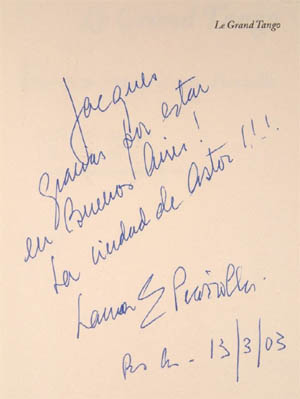 Le Grand Tango
Jacques
Gracias por estar
en Buenos Aires!
La ciudad de Astor!!!.
Laura E Piazzolla.
Bs As. 13/3/03